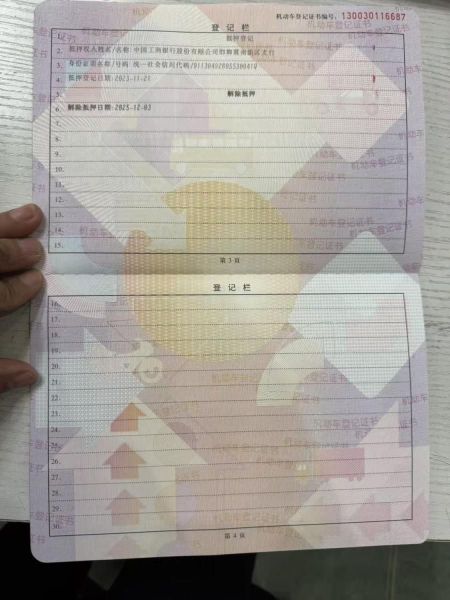 机动车登记证书编号: 130030116687
登记栏
1. 抵押登记
2. 抵押权人姓名/名称:中国工商银行股份有限公司邯郸冀南新区支行
3. 身份证明名称/号码:统一社会信用代码/
4. 抵押登记日期:2023-11-21
5. 解除抵押
6. 解除抵押日期:2025-12-03
7.
8.
9.
10.
11.
12.
13.
14.
15.
第3页
登记栏
16.
17.
18.
19.
20.
21.
22.
23.
24.
25.
26.
27.
28.
29.
30.
第4页
机动车登记证书